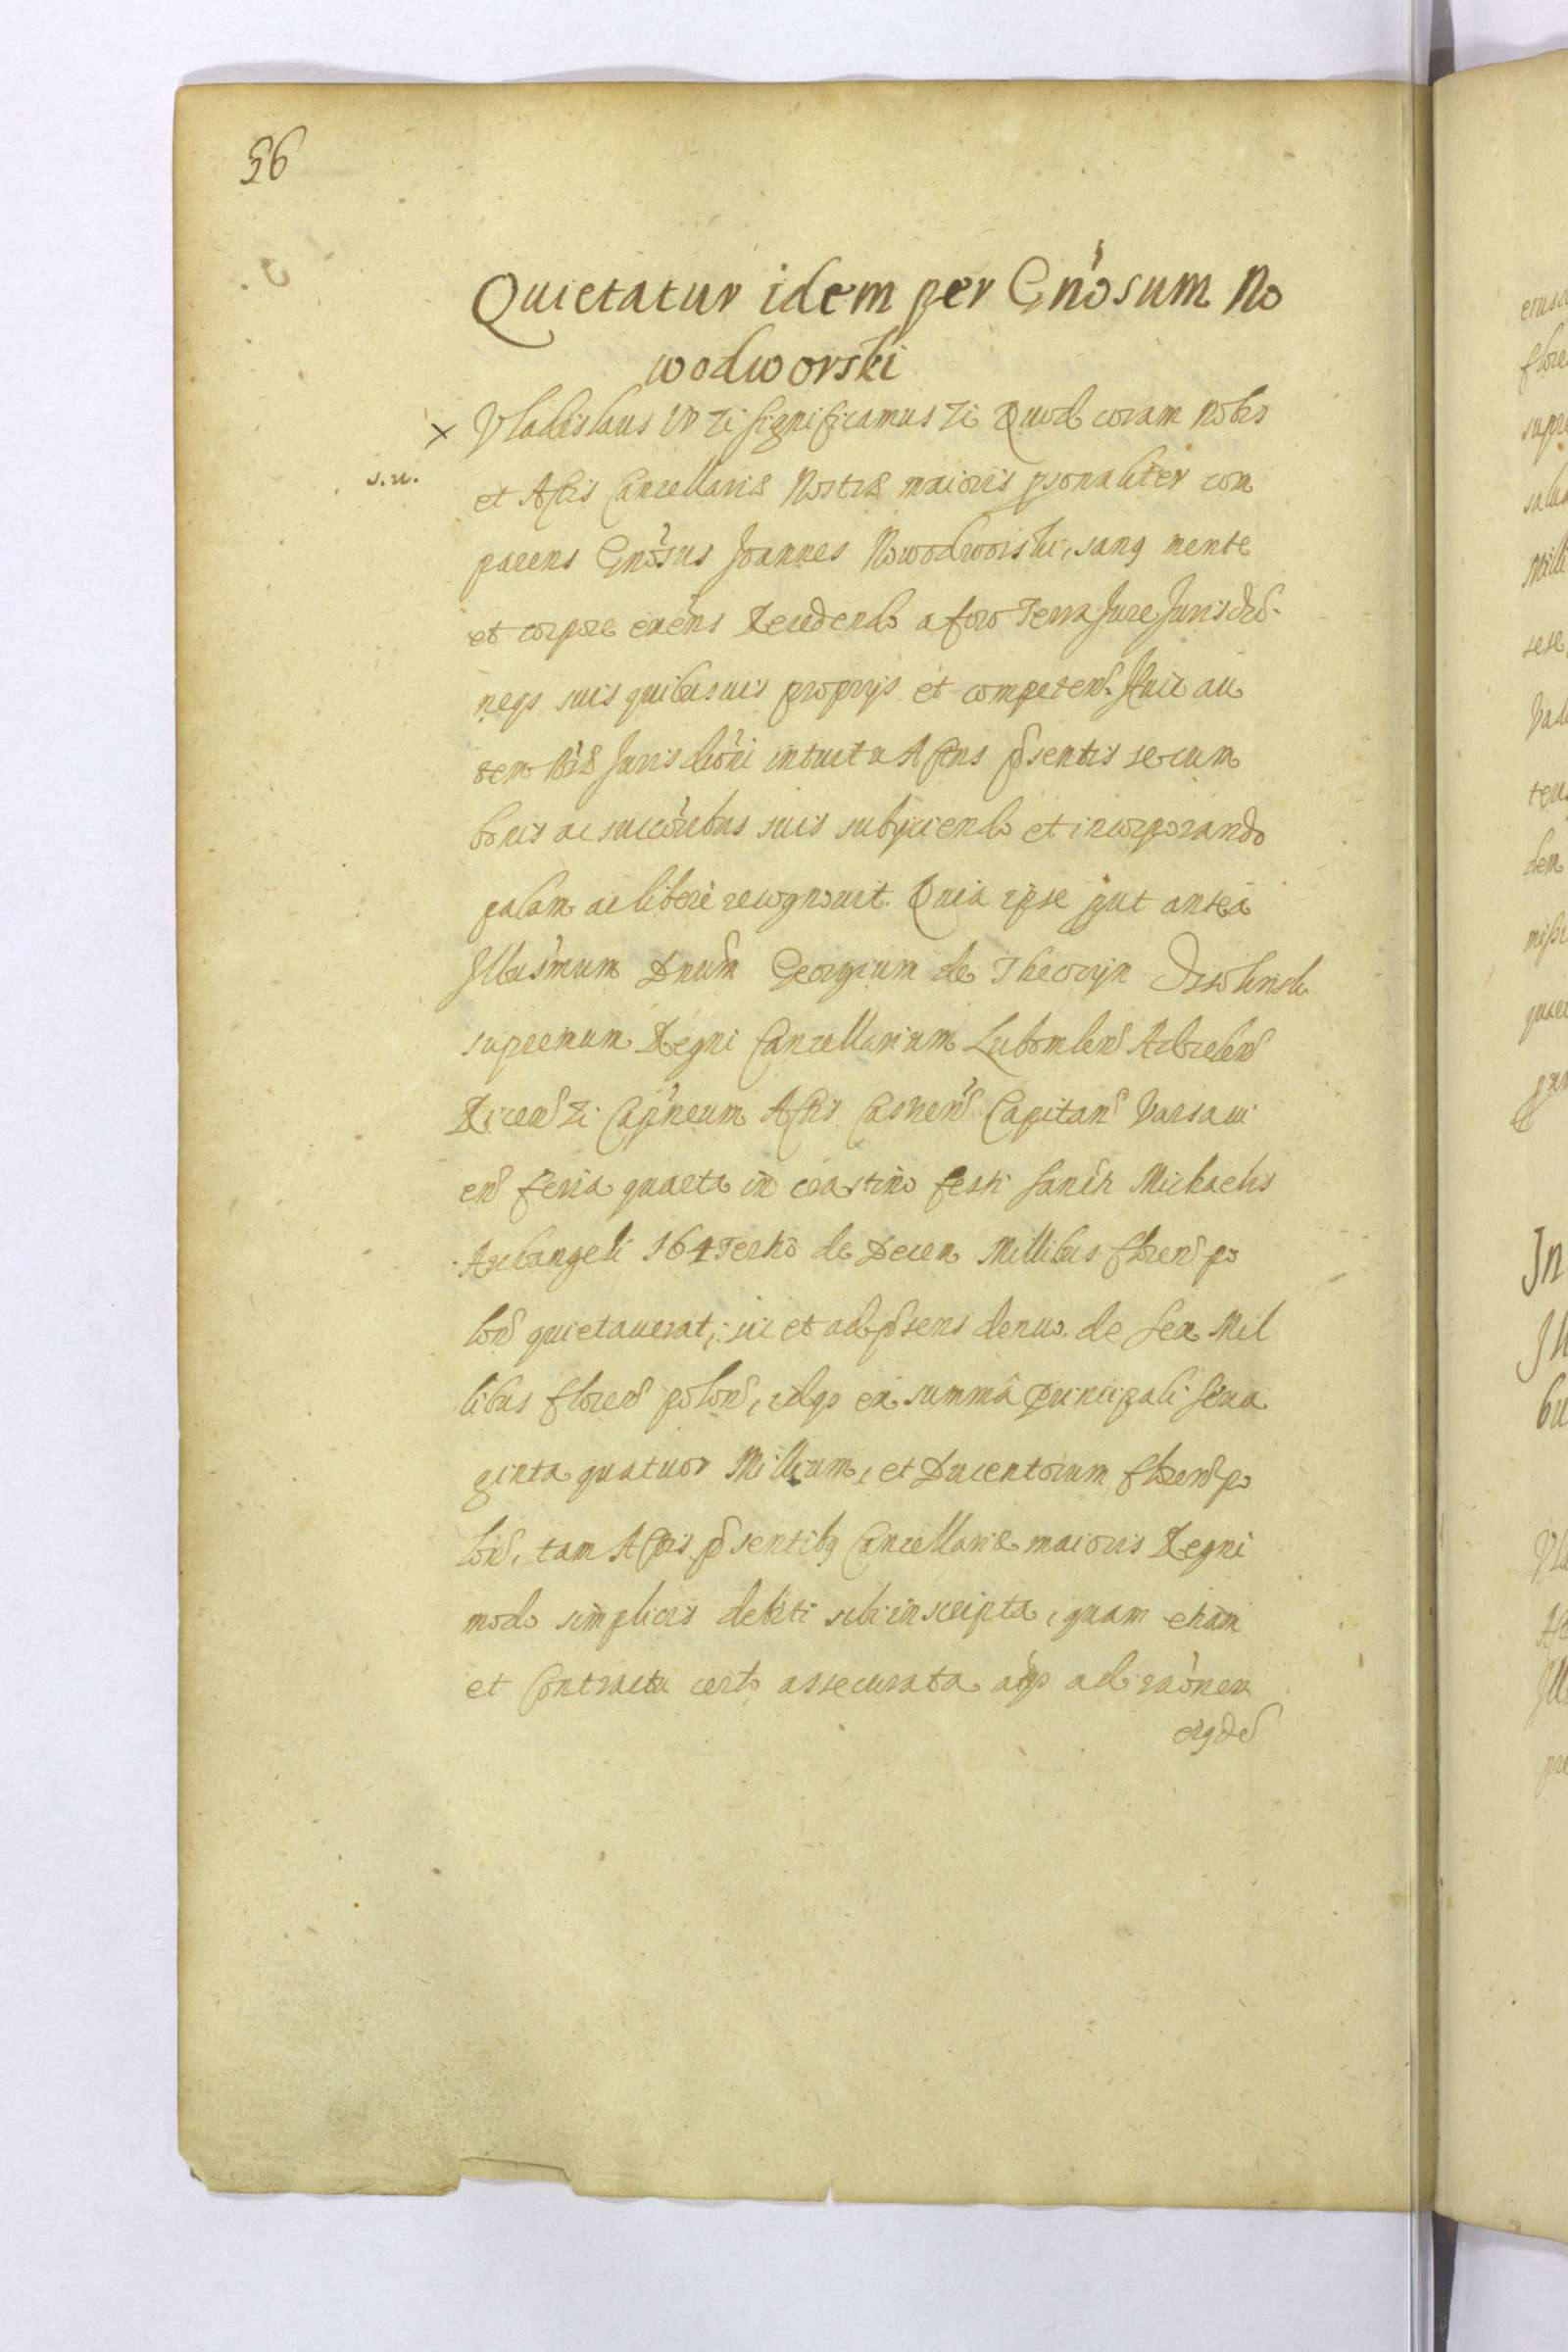 56
Quietatur idem per Gn̄osum No
wodworski
× Vladislaus IV ēt significamus ēt Quod coram nobis
s. n.
et Actis Cancellariæ Nostræ maioris psonaliter com
parens Gn̄osus Joannes Nowodworski, sanq mente
et corpore exēns Recedendo a foro Terra Jure Jurisdcō-
neqз suis quibusuis proprijs et competen. Huic au
tem Nr̄æ Jurisdicōni intuitu Actus pñsentis se cum
bonis ac successōribus suis subijciendo et incorporando
palam ac liberè recognouit. Quia ipse put antea
Illusr̄mum Dnūm Georgium de Theczyn Ossolinski
supremum Regni Cancellarium Lubomlen Adzelen
Ricen ēt Capn̄eum Actis Casren Capitan Varsaui
en feria quarta in crastino festi Sancti Michaelis
Archangeli 164Tertio de Decem Millibus floren po
lon quietauerat, sic et ad pñsens denuo de Sex Mil
libus floren polon, idqз ex summâ principali Sexa
ginta quatuor Millium, et Ducentorum floren po
lon, tam Actis pñsentibq Cancellariæ maioris Regni
modo simplicis debiti sibi inscripta, quam etiam
et Contractu certo assecurata atqз ad raōnem
eiqdē